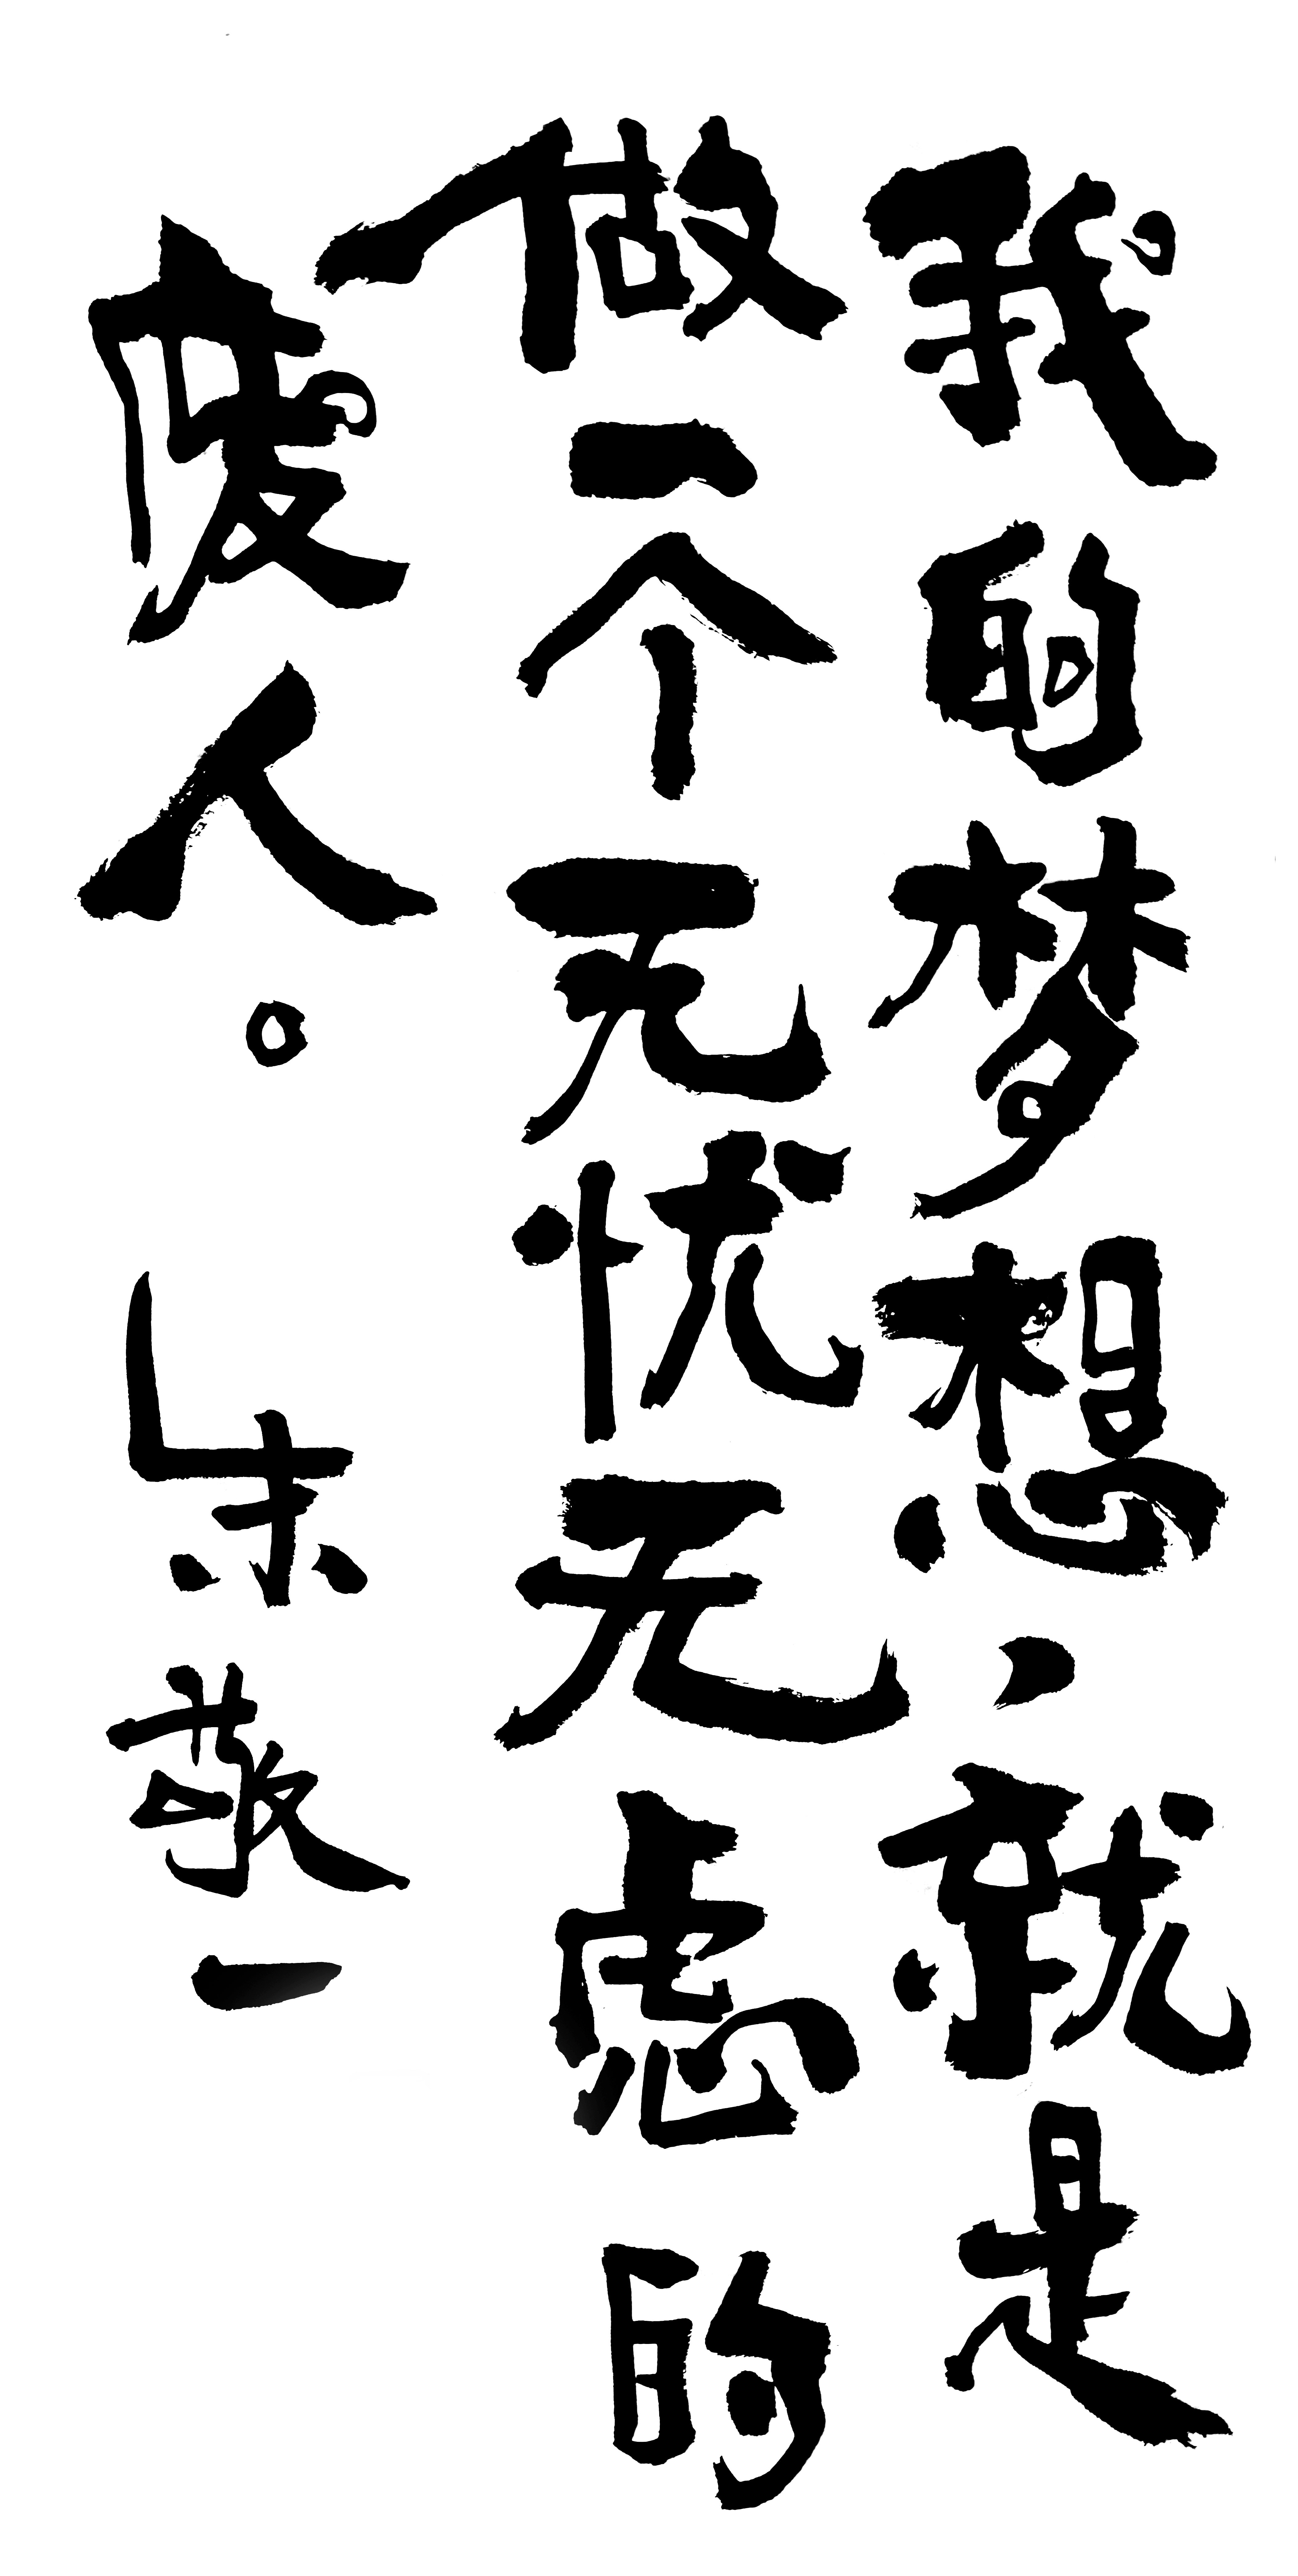 我的梦想,就是
做一个无忧无虑的
废人。朱敬一